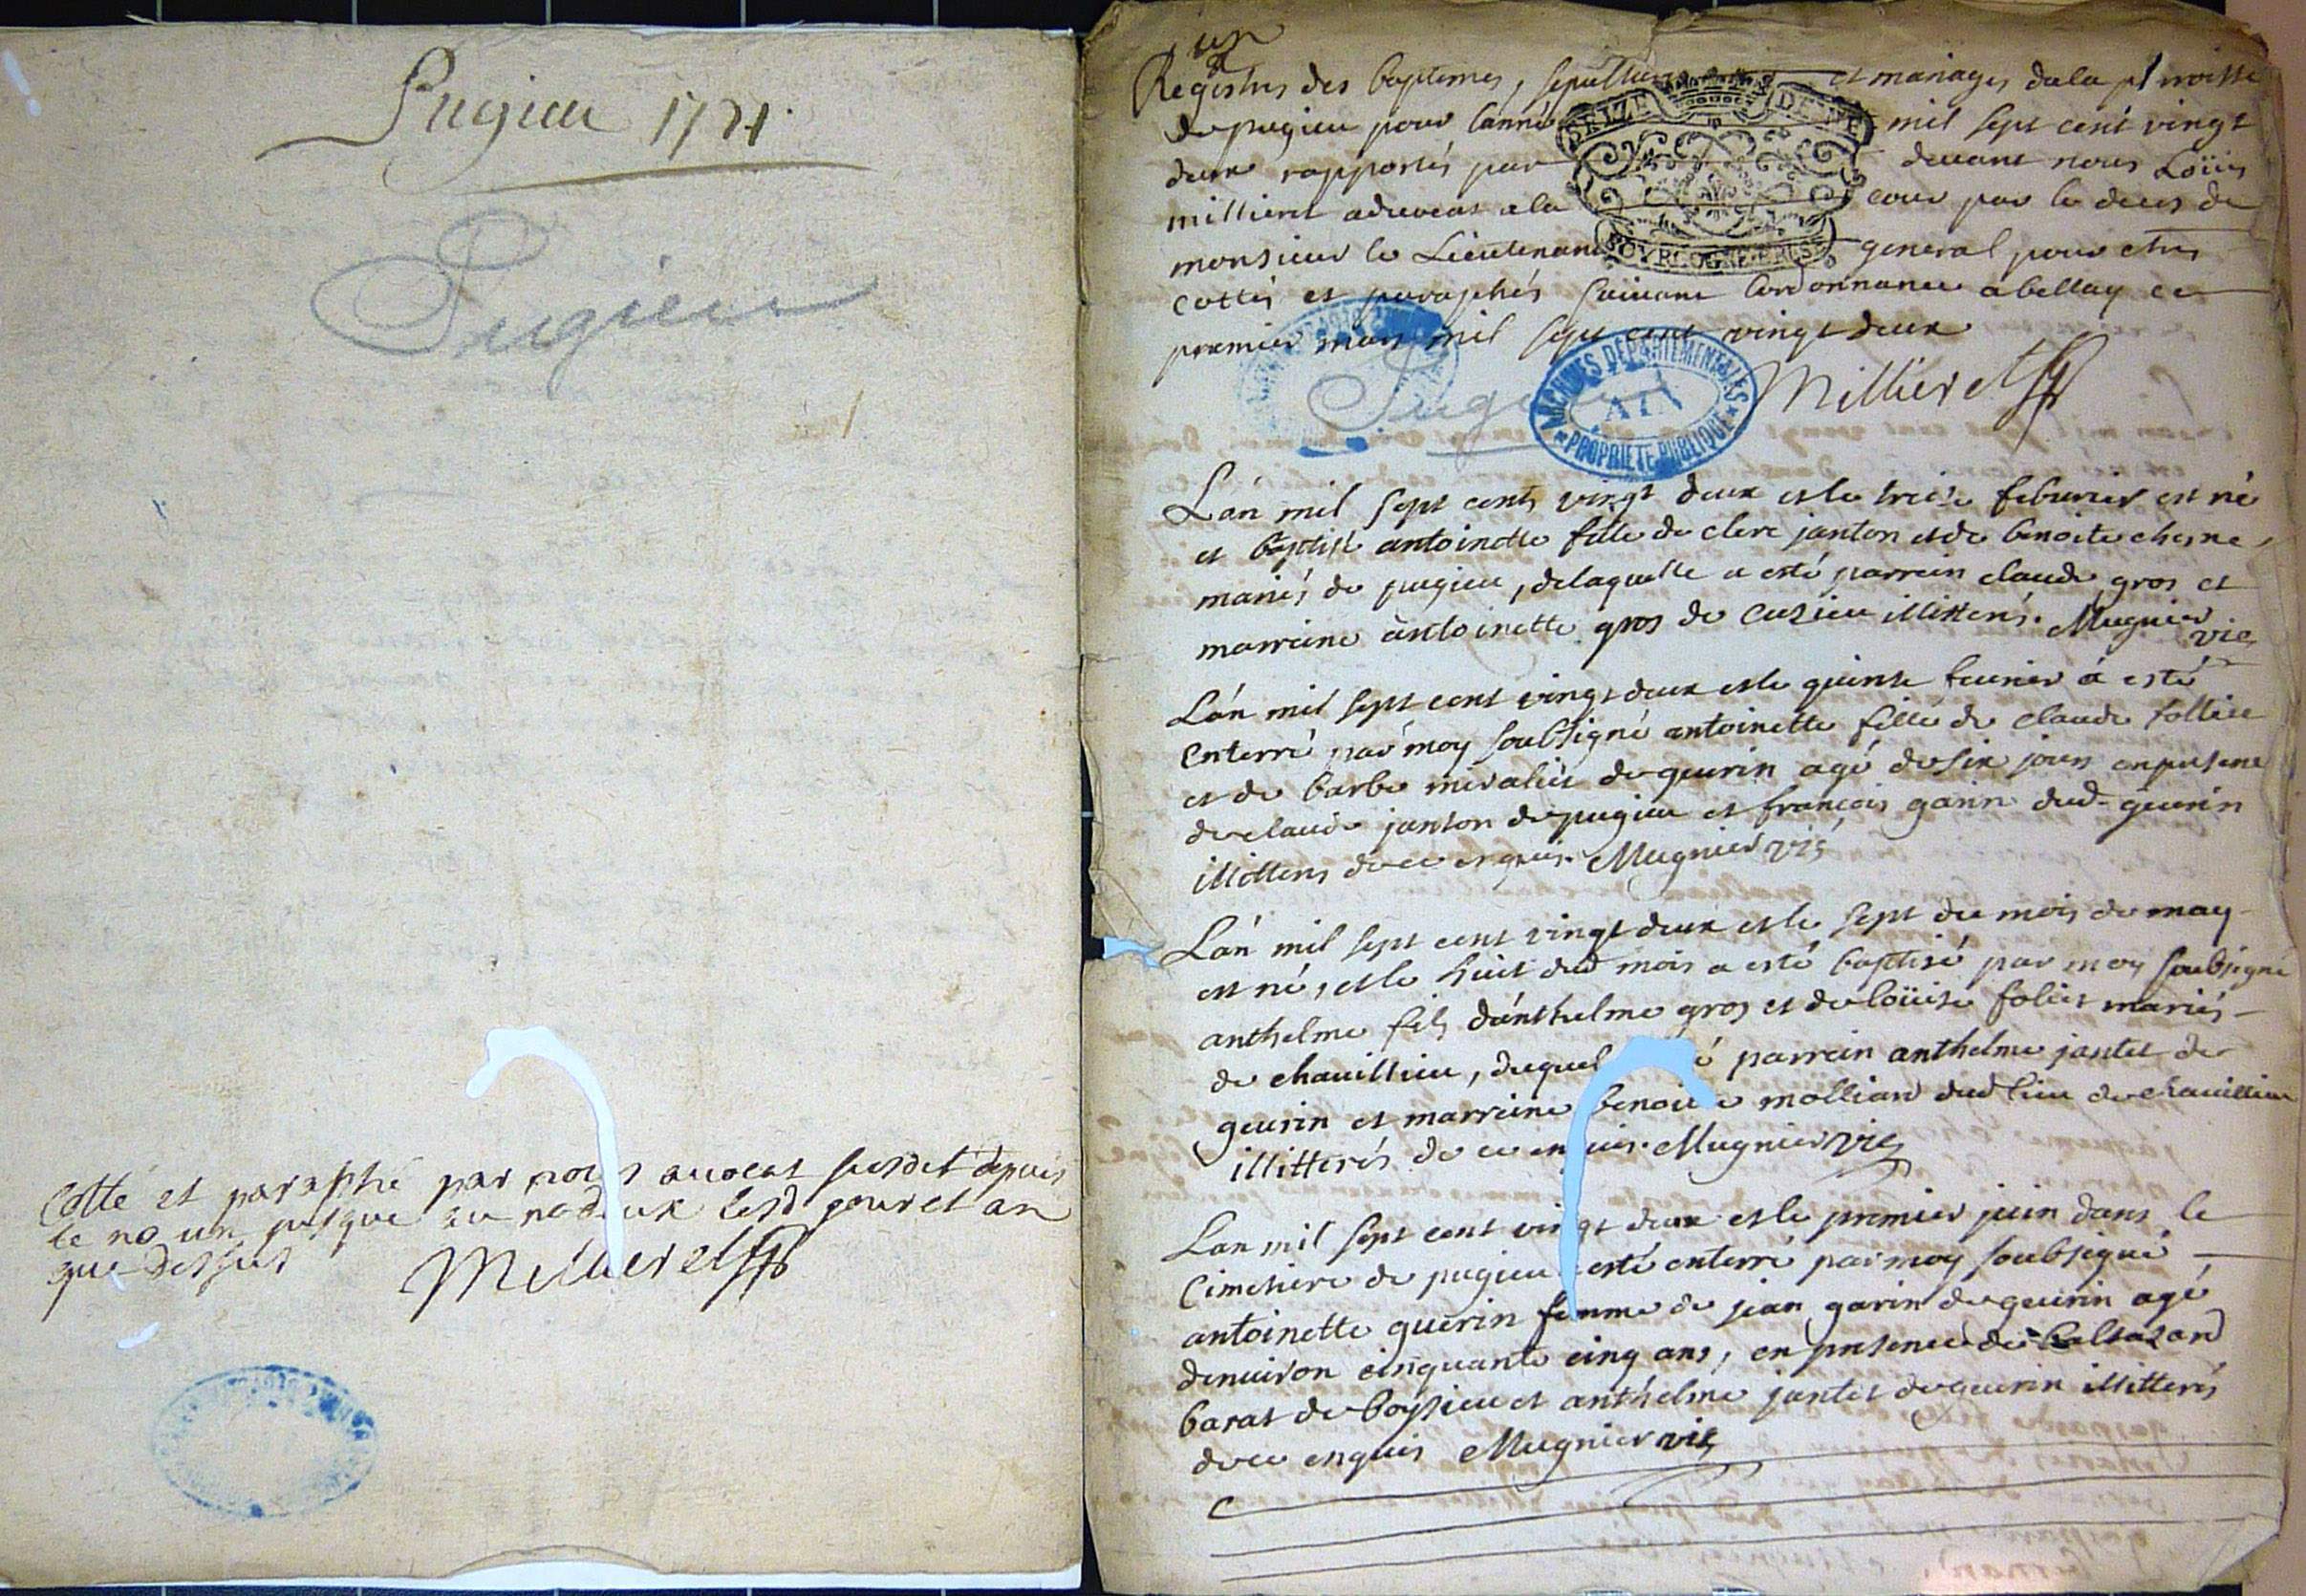 Pugieu 1721.
Pugieu
Cotté et paraphé par nous avocat susdit depuis
le no un jusque au no deux lesd jour et an
que dessus Millieret
un
Registres des baptemes, sepultures et mariages dela parroisse
de pugieu pour lanné mil sept cent vingt
deux rapportés par devant nous Loüis
millieret aduocat a la cour par le deces de
monsieur le Lieutenant general pour etres
cottés et paraphés suiuant lordonnance a bellay ce
premier mars mil sept cent vingt deux
SEIZE DEN
BOVRGOGNE BRESSE
Pugieu
ARCHIVES DÉPARTEMENTALES
AIN
PROPRIÉTÉ PUBLIQUE
Millieret
L'án mil sept cents vingt deux et le treize feburier est né
et baptisé antoinette fille de clere janton et de benoite chesne
mariés de pugieu, delaquelle a esté parrain claude gros et
marreine antoinette gros de Cuzieu illitterés. Mugnier
vic
Lán mil sept cent vingt deux et le quinze feurier á esté
enterré par moy soubsigné antoinette fille de claude folliet
et de barbe miraliet de geurin agé de six jours en presence
de claude janton de pugieu et francois garin dud geurin
illitterés de ce enquis. Mugnier vic
Lán mil sept cent vingt deux et le sept du mois de may
est né, et le huit dud mois a esté baptisé par moy soubsigné
anthelme fils dánthelme gros et de loüise foliet mariés
de chauillieu, duquel é parrain anthelme jantet de
geurin et marreine benoite molliard dud lieu de chauillieu
illitterés de ce enquis. Mugnier vic
Lan mil sept cent vingt deux et le premier juin dans le
Cimetiere de pugieu esté enterré par moy soubsigné
antoinette guerin femme de jean garin de geurin agé
denuiron cinquante cinq ans, en presence de baltazard
barat de boyssieu et anthelme jantet de geurin illitterés
de ce enquis Mugnier vic